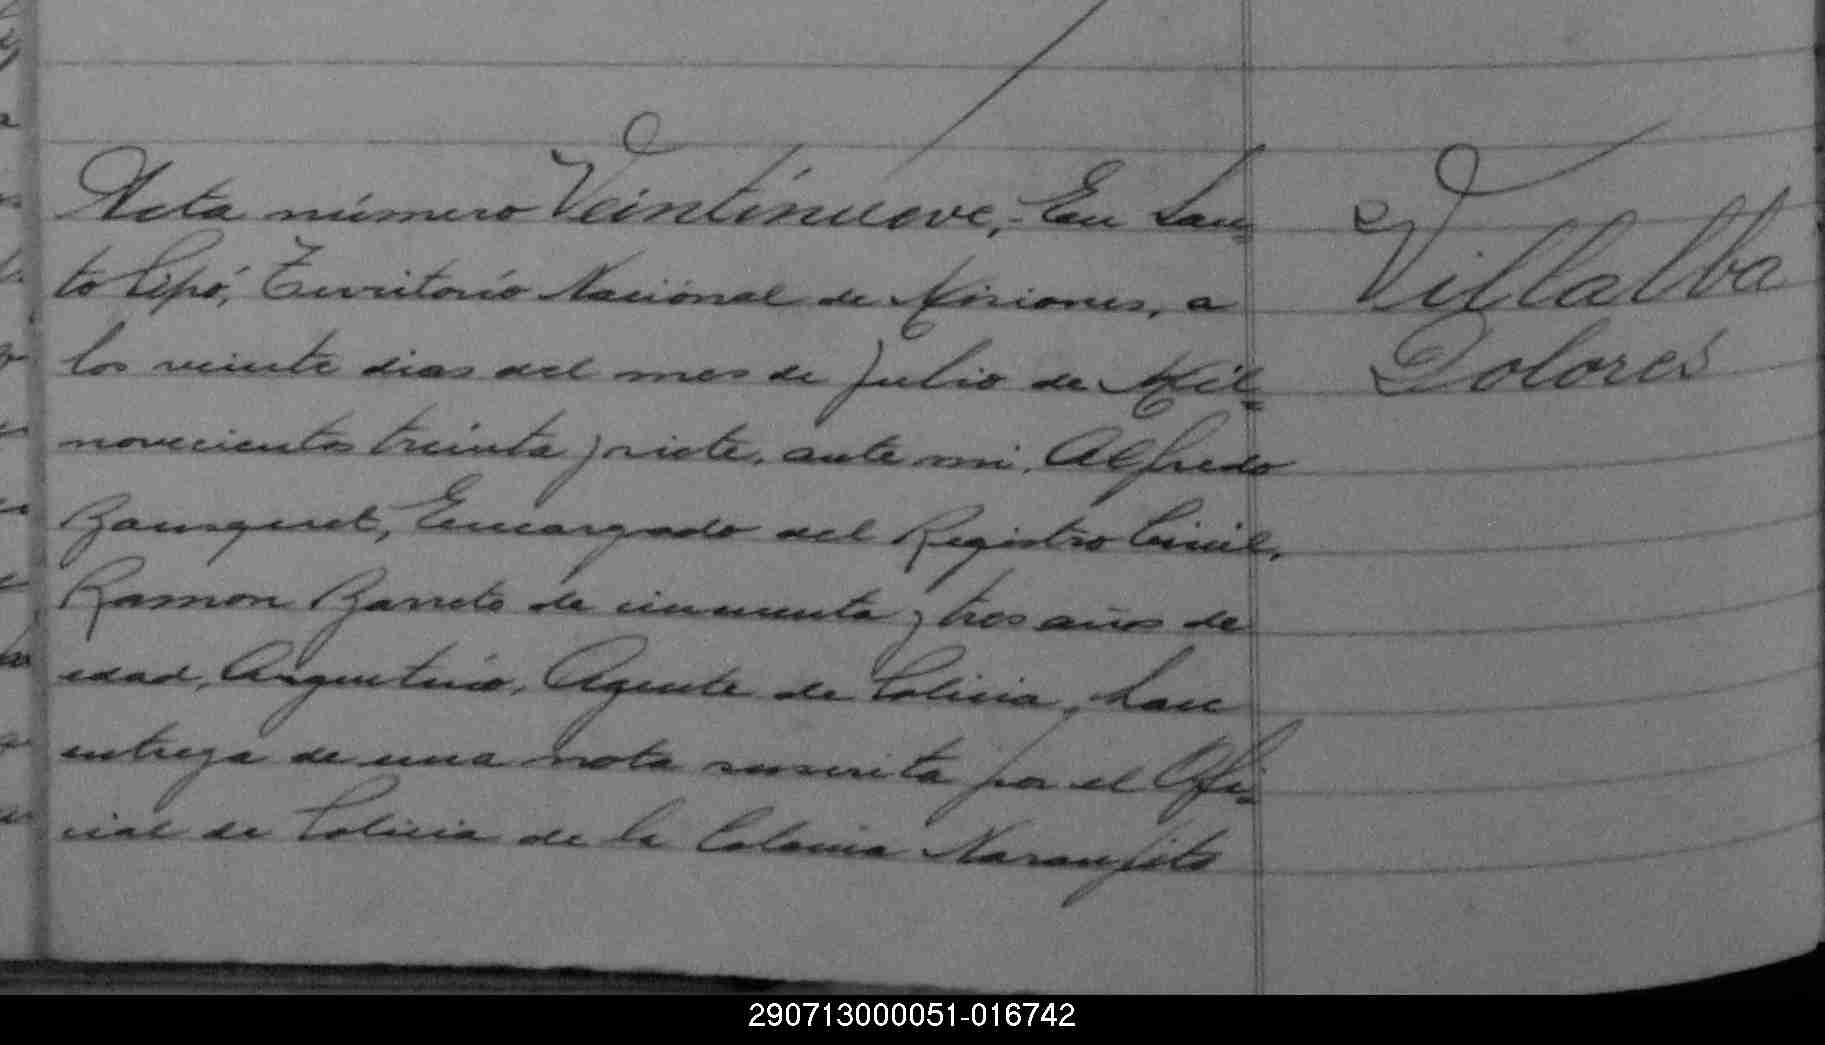 Acta número Veintinueve, En San=
to Pipó, Territorio Nacional de Misiones, a
los veinte dias del mes de Julio de Mil=
novecientos treinta y siete, ante mi, Alfredo
Encargado del Registro Civil,
Ramon Barreto de cincuenta y tres años de
edad, Argentino, Agente de Policia, hace
entrega de una nota suscrita por el Ofi=
cial de Policia de la Colonia Naranjito
Villalba
Dolores
290713000051-016742